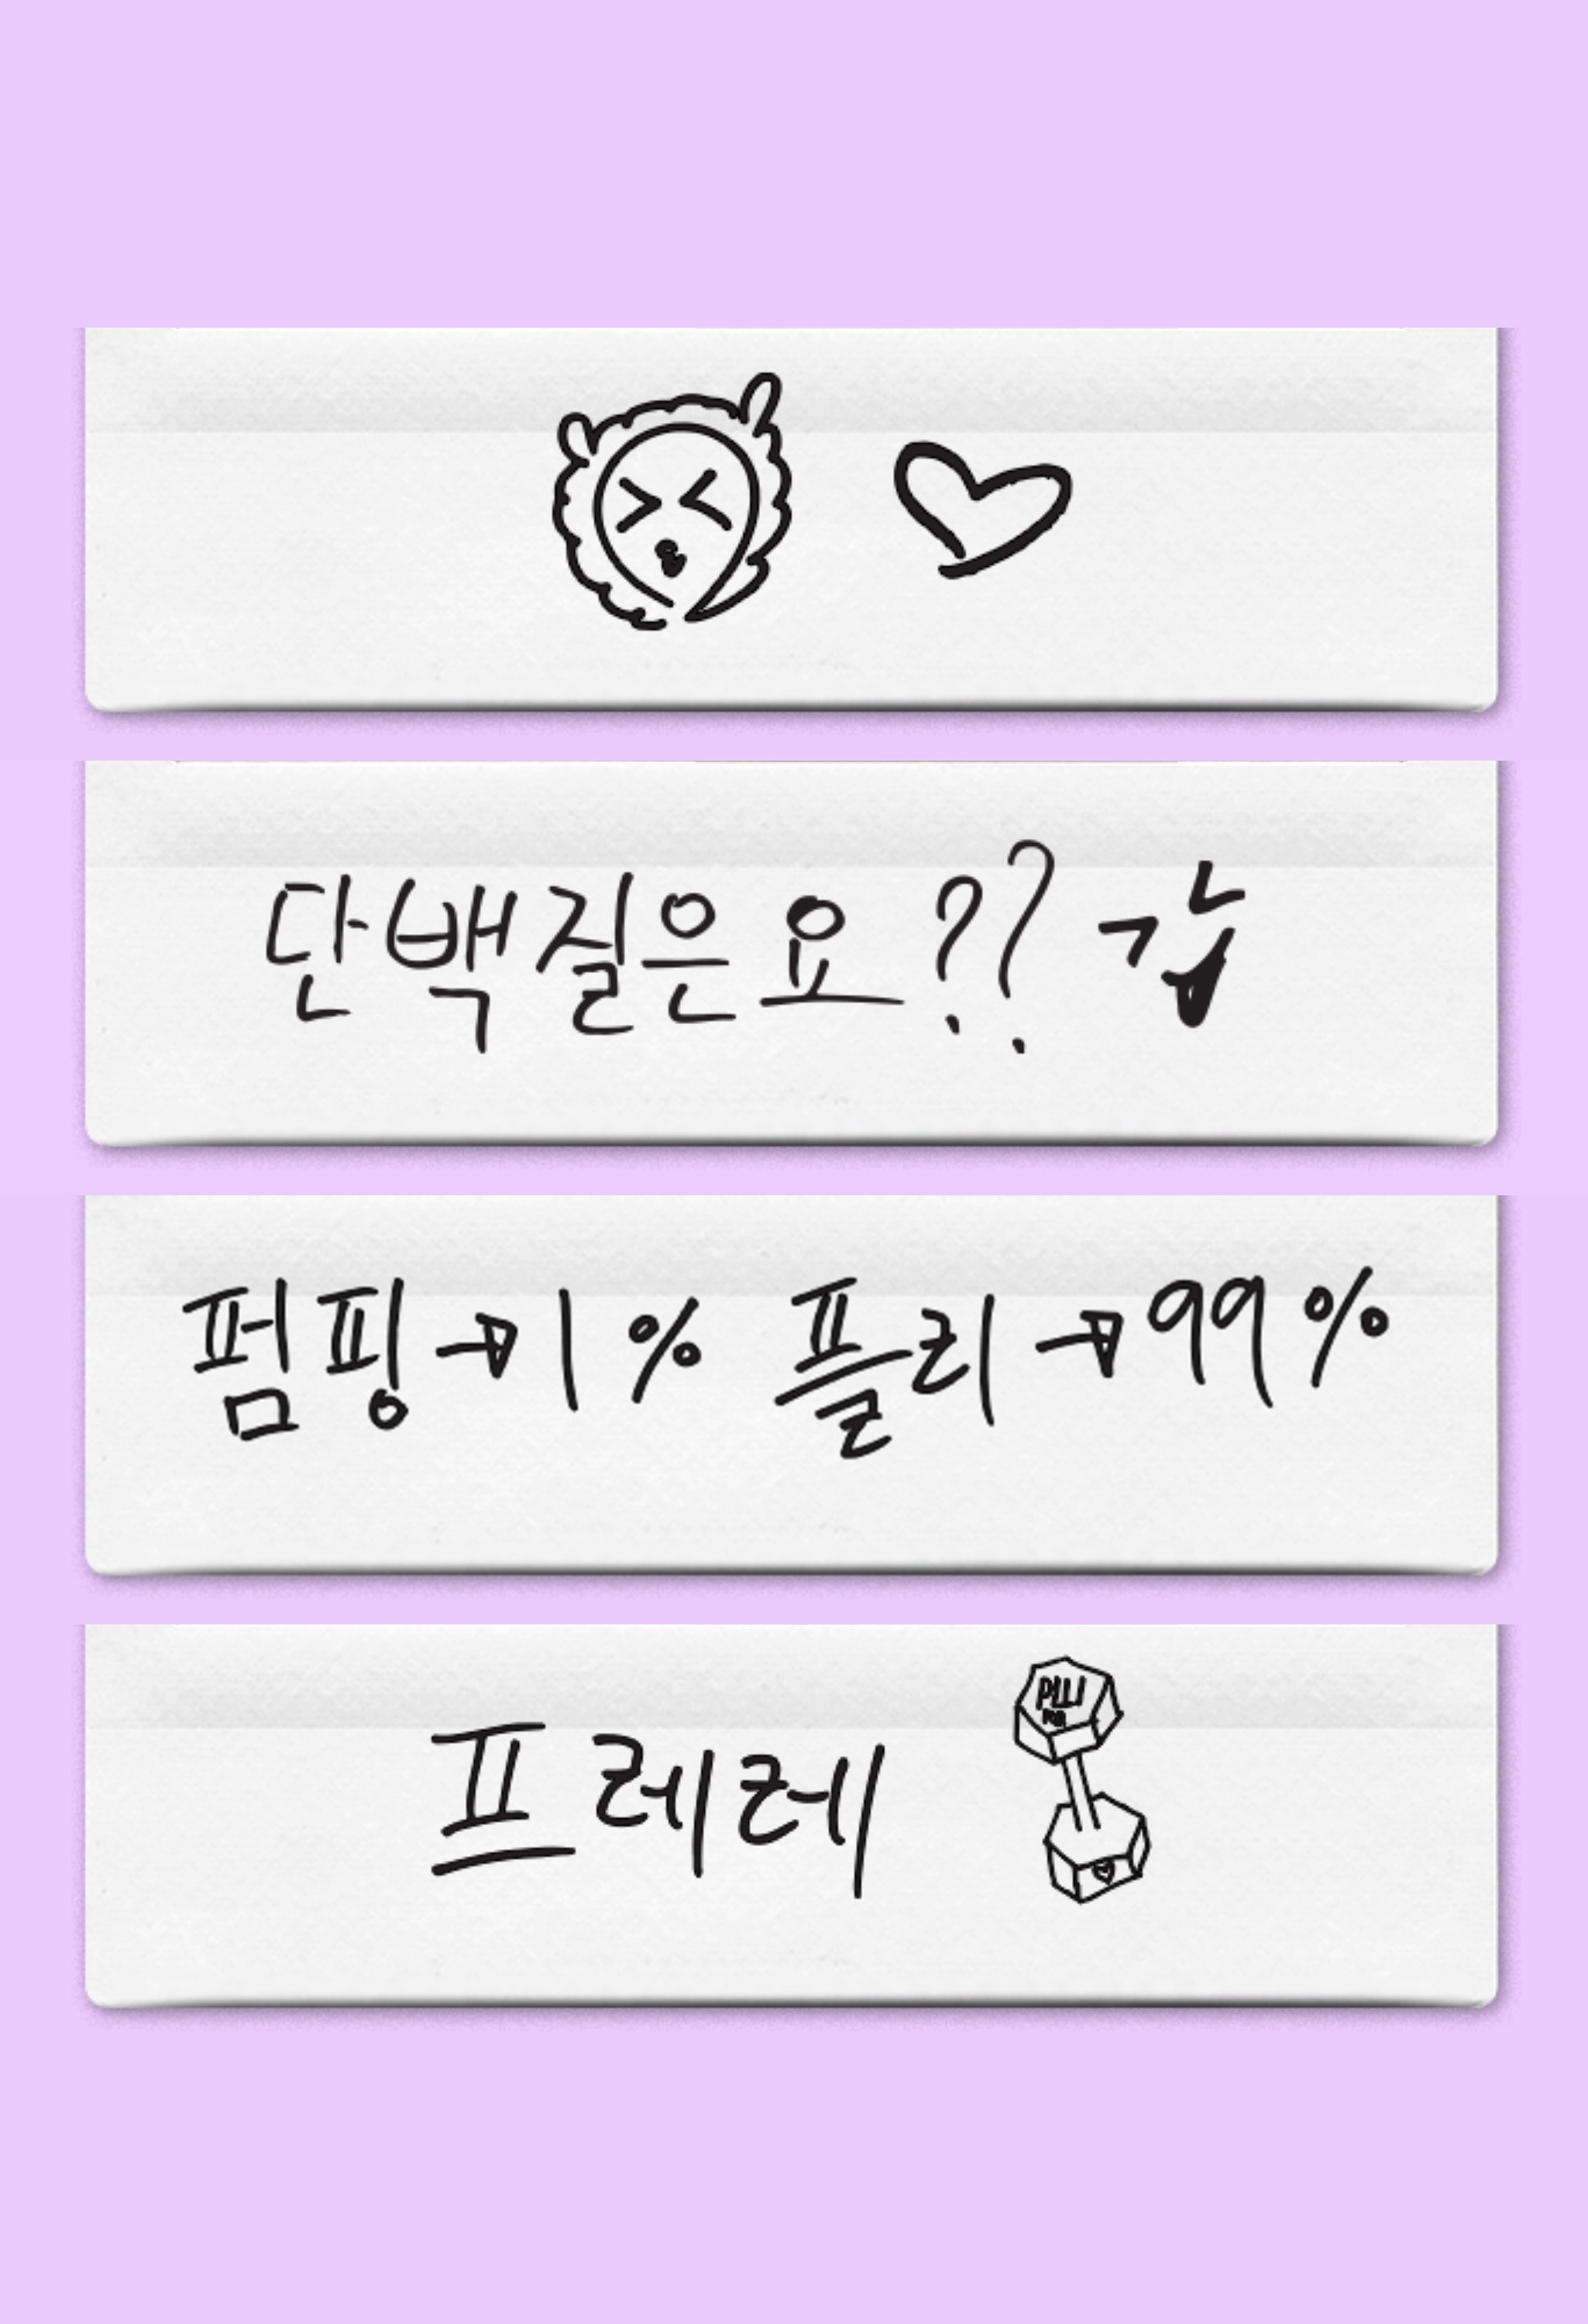 단백질은요??
펌핑→1% 플리→99%
프레레
PLLI